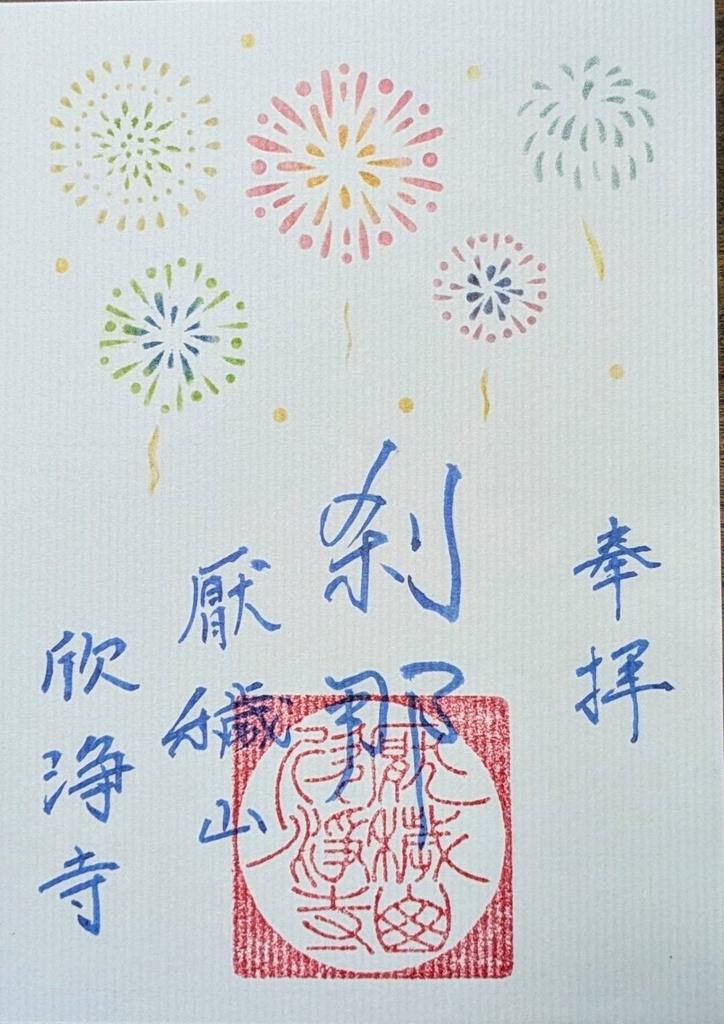 奉拝
刹那
厭穢山
欣浄寺
厭穢山
欣浄寺